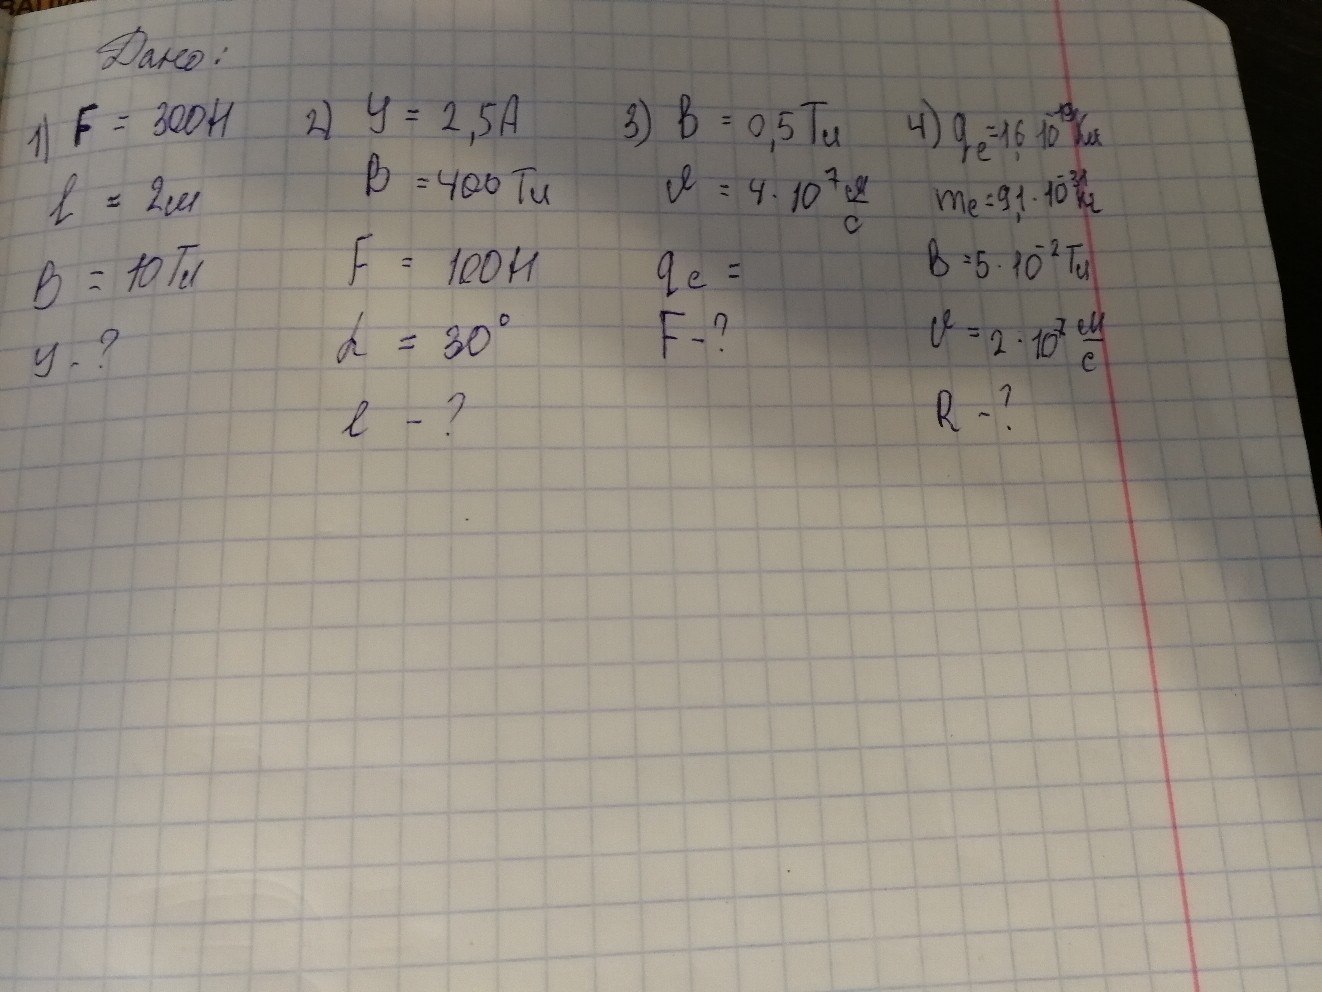 Дано:
1) F = 300Н
l = 2м
B = 10Тл
У - ?
2) У = 2,5А
B = 400Тл
F = 100Н
α = 30°
l - ?
3) B = 0,5Тл
v = 4·10⁷ м/с
qe =
F - ?
4) qe = 1,6·10⁻¹⁹Кл
me = 9,1·10⁻³¹кг
B = 5·10⁻²Тл
v = 2·10⁷ м/с
R - ?